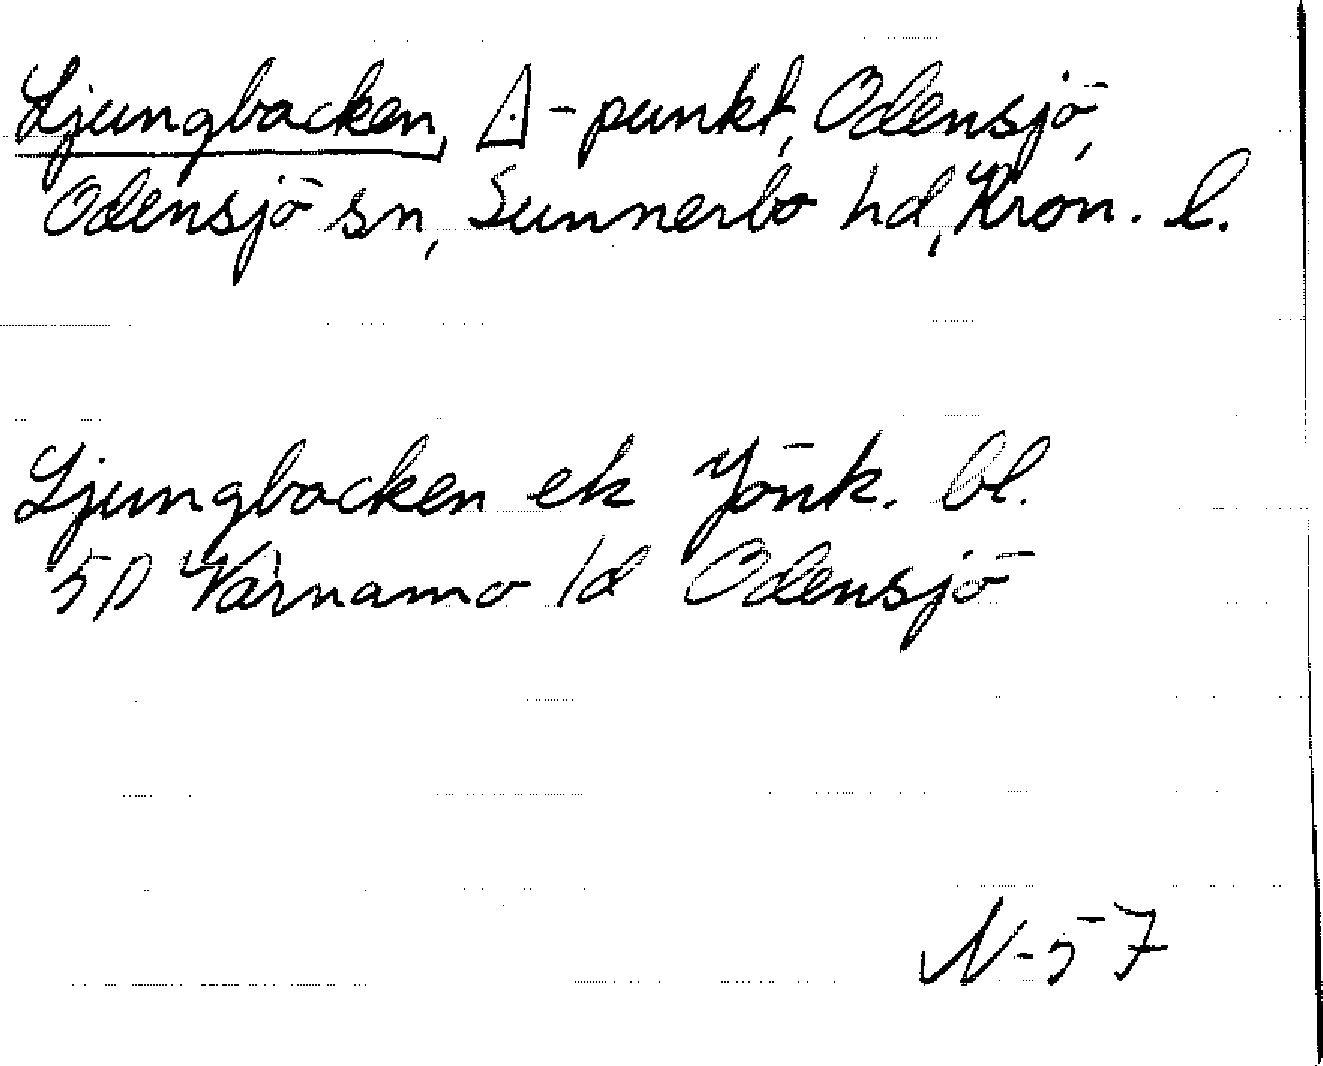 Ljungbacken, △-punkt, Odensjö,
Odensjö sn, Sunnerbo hd, Kron. l.
Ljungbacken ek Jönk. bl.
5D Värnamo ld Odensjö
N-57